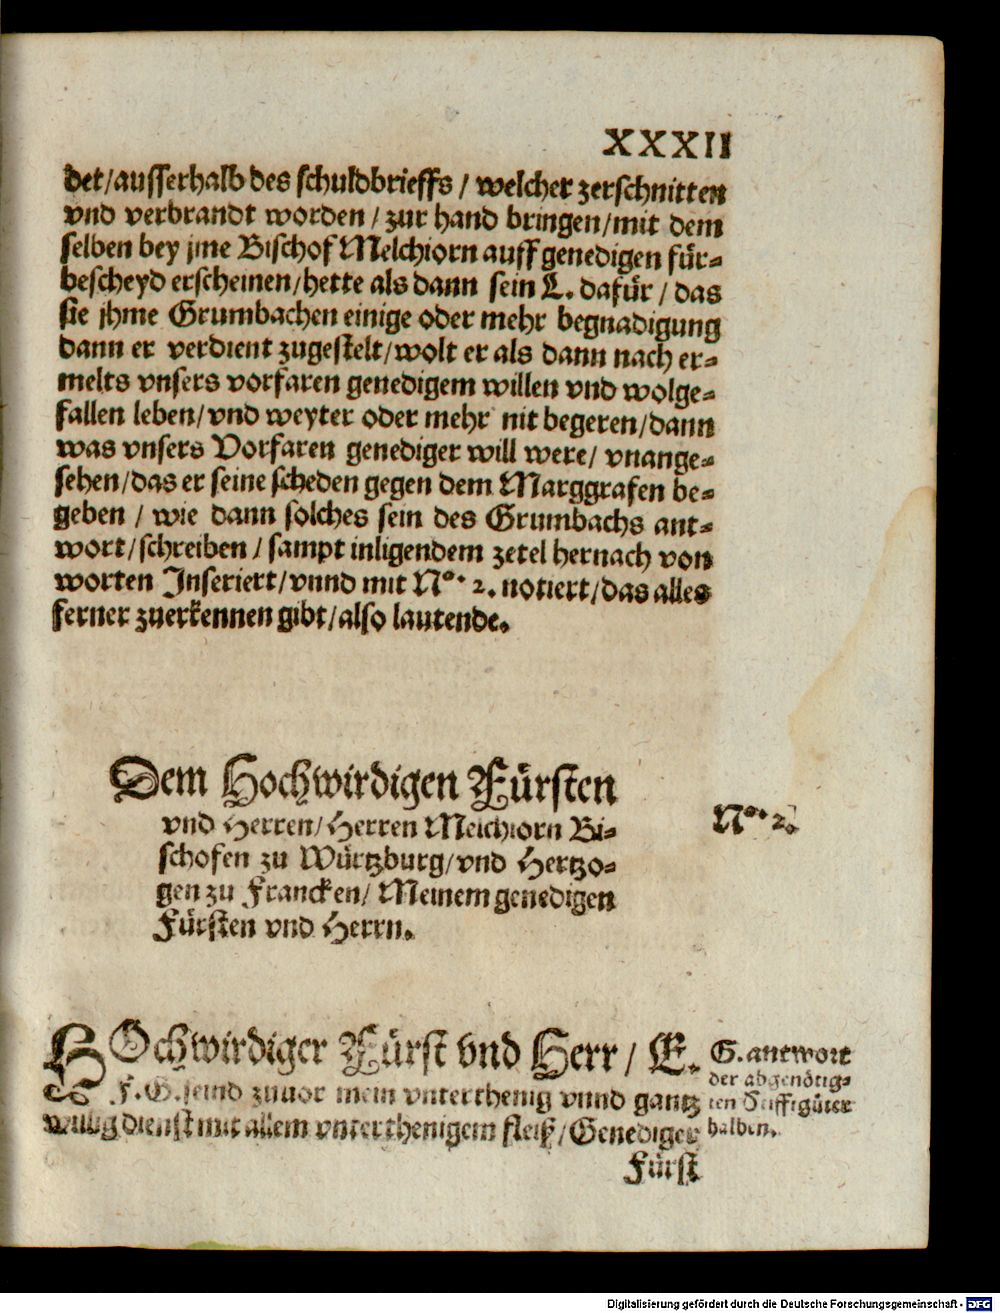 XXXII
det/ausserhalb des schuldbrieffs / welcher zerschnitten
vnd verbrandt worden / zur hand bringen/mit dem
selben bey jme Bischof Melchiorn auff genedigen für-
bescheyd erscheinen/hette als dann sein L. dafür / das
sie jhme Grumbachen einige oder mehr begnadigung
dann er verdient zugestelt/wolt er als dann nach er-
melts vnsers vorfaren genedigem willen vnd wolge-
fallen leben/vnd weyter oder mehr nit begeren/dann
was vnsers Vorfaren genediger will were/ vnange-
sehen/das er seine scheden gegen dem Marggrafen be-
geben / wie dann solches sein des Grumbachs ant-
wort/schreiben / sampt inligendem zetel hernach von
worten Inseriert/vnnd mit No. 2. notiert/das alles
ferner zuerkennen gibt/also lautende.
Dem Hochwirdigen Fürsten
vnd Herren/Herren Melchiorn Bi-
schofen zu Würtzburg/vnd Hertzo-
gen zu Francken/ Meinem genedigen
Fürsten vnd Herrn.
No. 2.
HOchwirdiger Fürst vnd Herr / E.
F. G. seind zuuor mein vnterthenig vnnd gantz
willig dienst mit allem vnterthenigem fleiß/Genediger
G. antwort
der abgenötig-
ten Stifftgüter
halben.
Fürst
Digitalisierung gefördert durch die Deutsche Forschungsgemeinschaft - DFG